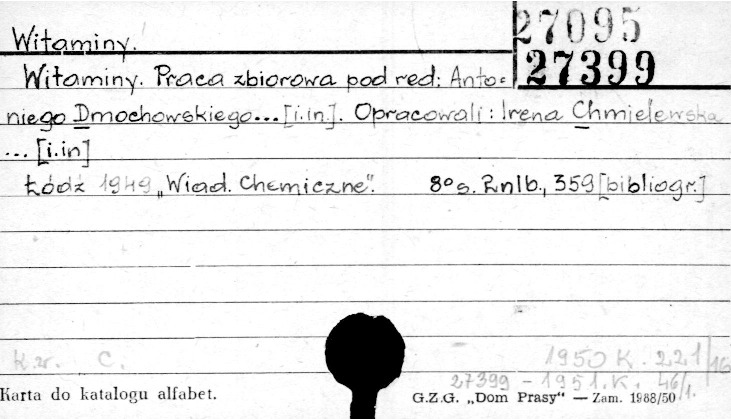 27095
Witaminy.
27399
Witaminy. Praca zbiorowa pod red: Anto=
niego Dmochowskiego... [i.in]. Opracowali: Irena Chmielewska
... [i.in]
Łódź 1949 „Wiad. Chemiczne". 8º s. 2nlb., 359 [bibliogr.]
K.w. C. 1950 K. 221/16
27399 - 1951. K. 46/1.
Karta do katalogu alfabet. G.Z.G. „Dom Prasy" — Zam. 1988/50